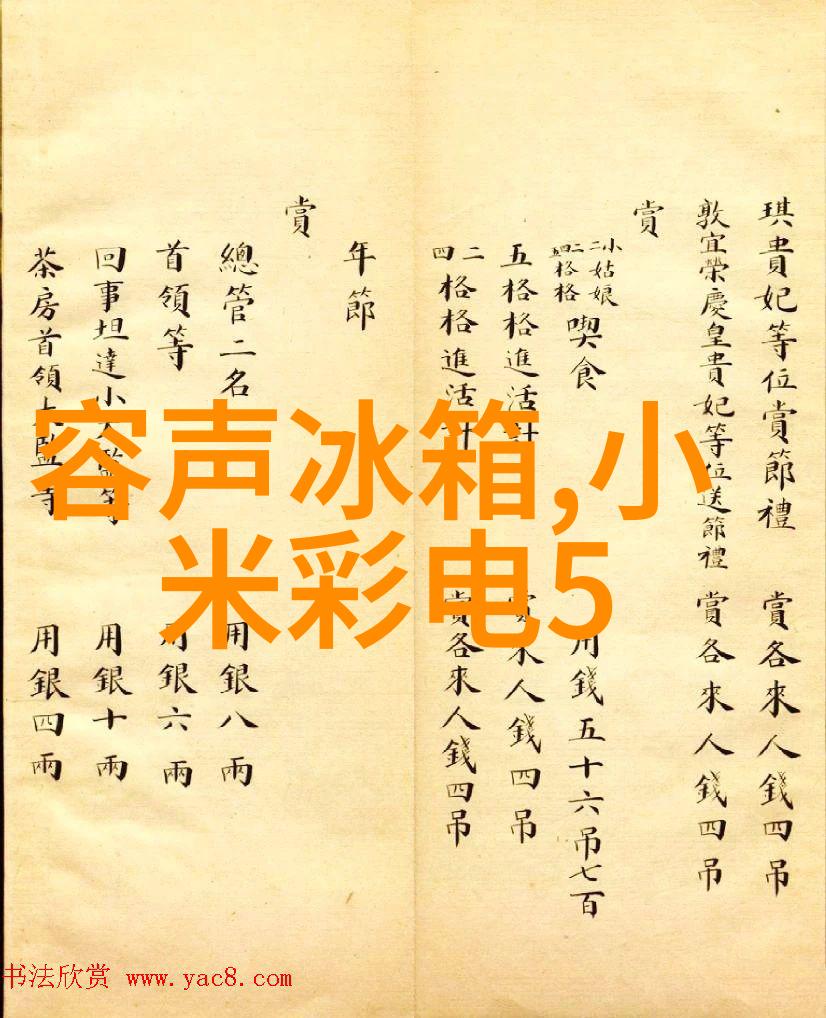 琪貴妃等位賞節禮 賞各來人錢四吊
敦宜榮慶皇貴妃等位送節禮 賞各來人錢四吊
賞
小姑娘
二二格格
四格格
喫食 用錢五十六吊七百
五格格進活計 賞來人錢四吊
二四格格進活計 賞各來人錢四吊
年節
賞
總管二名 用銀八兩
首領等 用銀六兩
回事坦達小太監等 用銀十兩
茶房首領太監等 用銀四兩
容声冰箱,小
米彩电5
书法欣赏 www.yac8.com